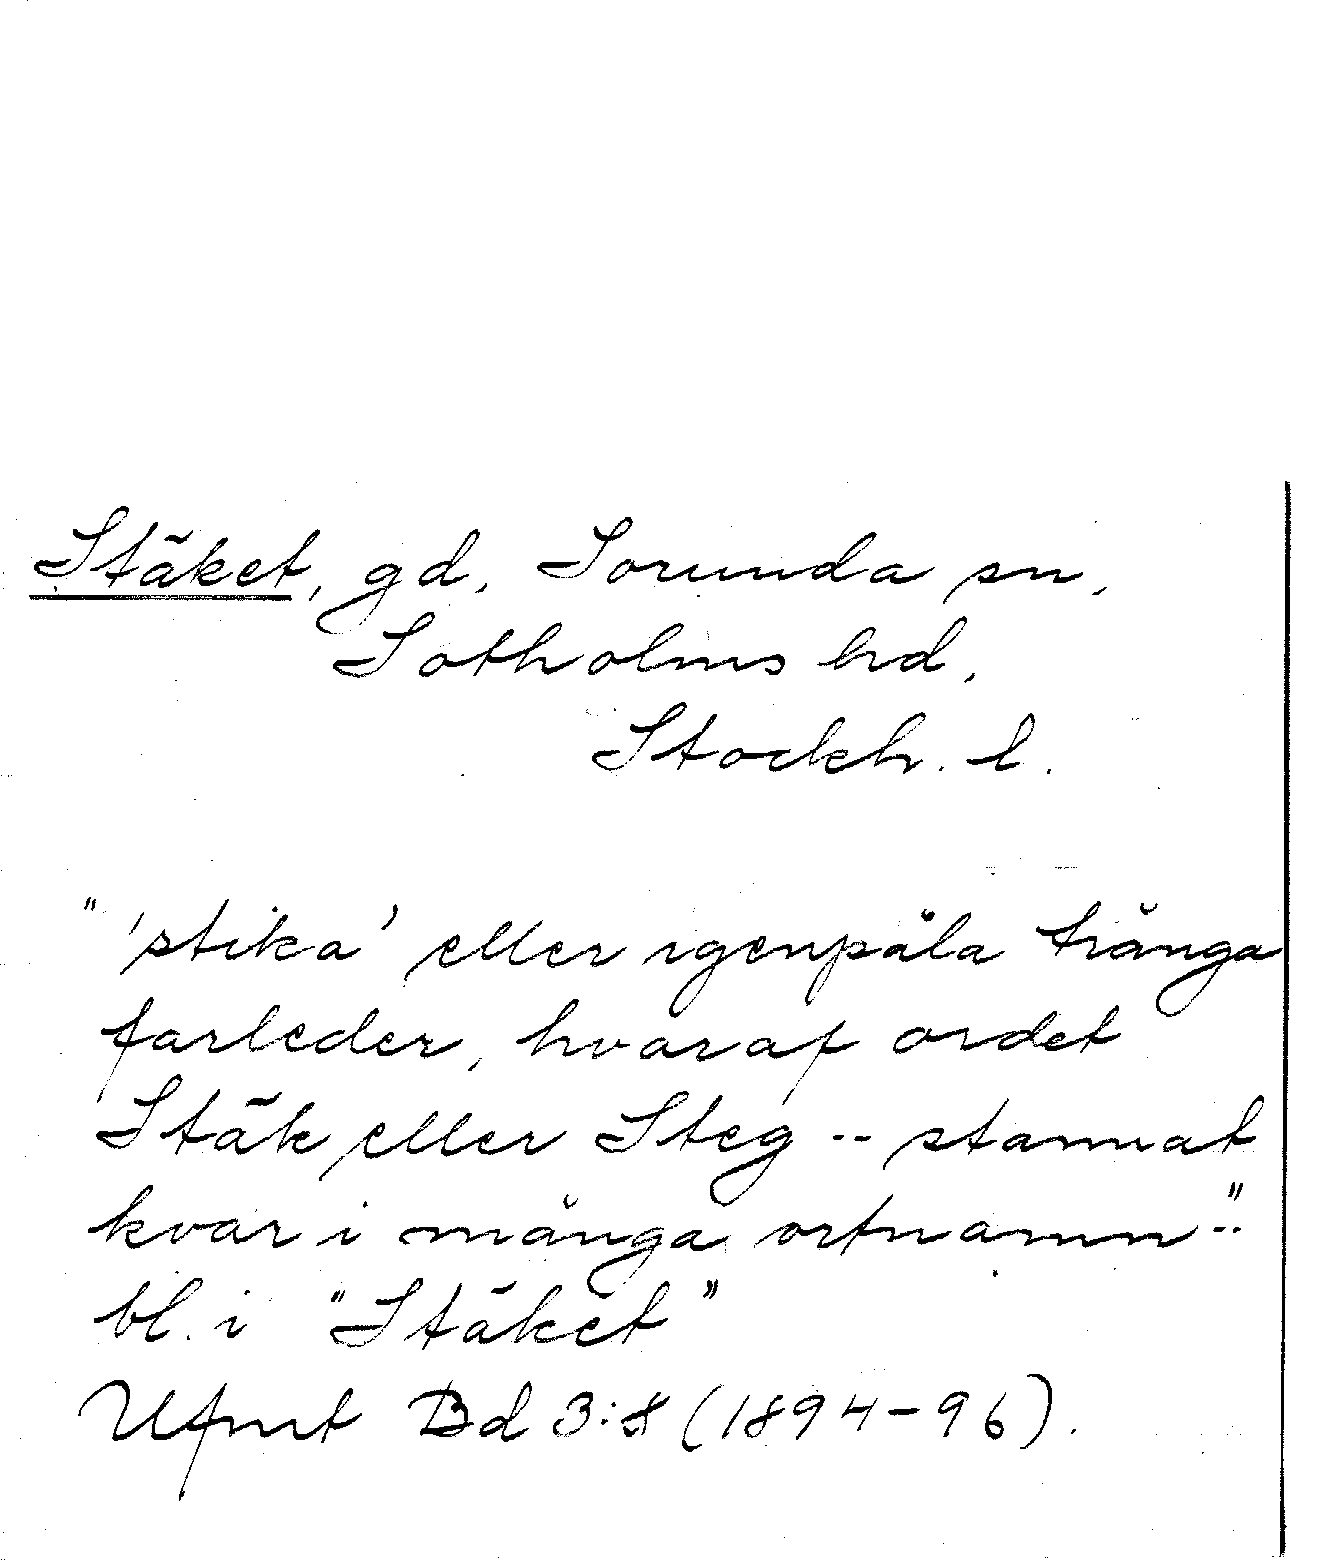 Stäket, gd, Sorunda sn,
Sotholms hd,
Stockh. l.
"'stika' eller igenpåla trånga
farleder, hvaraf ordet
Stäk eller Steg -- stannat
kvar i många ortnamn --"
bl. i "Stäket"
Ufmt Bd 3:8 (1894-96).